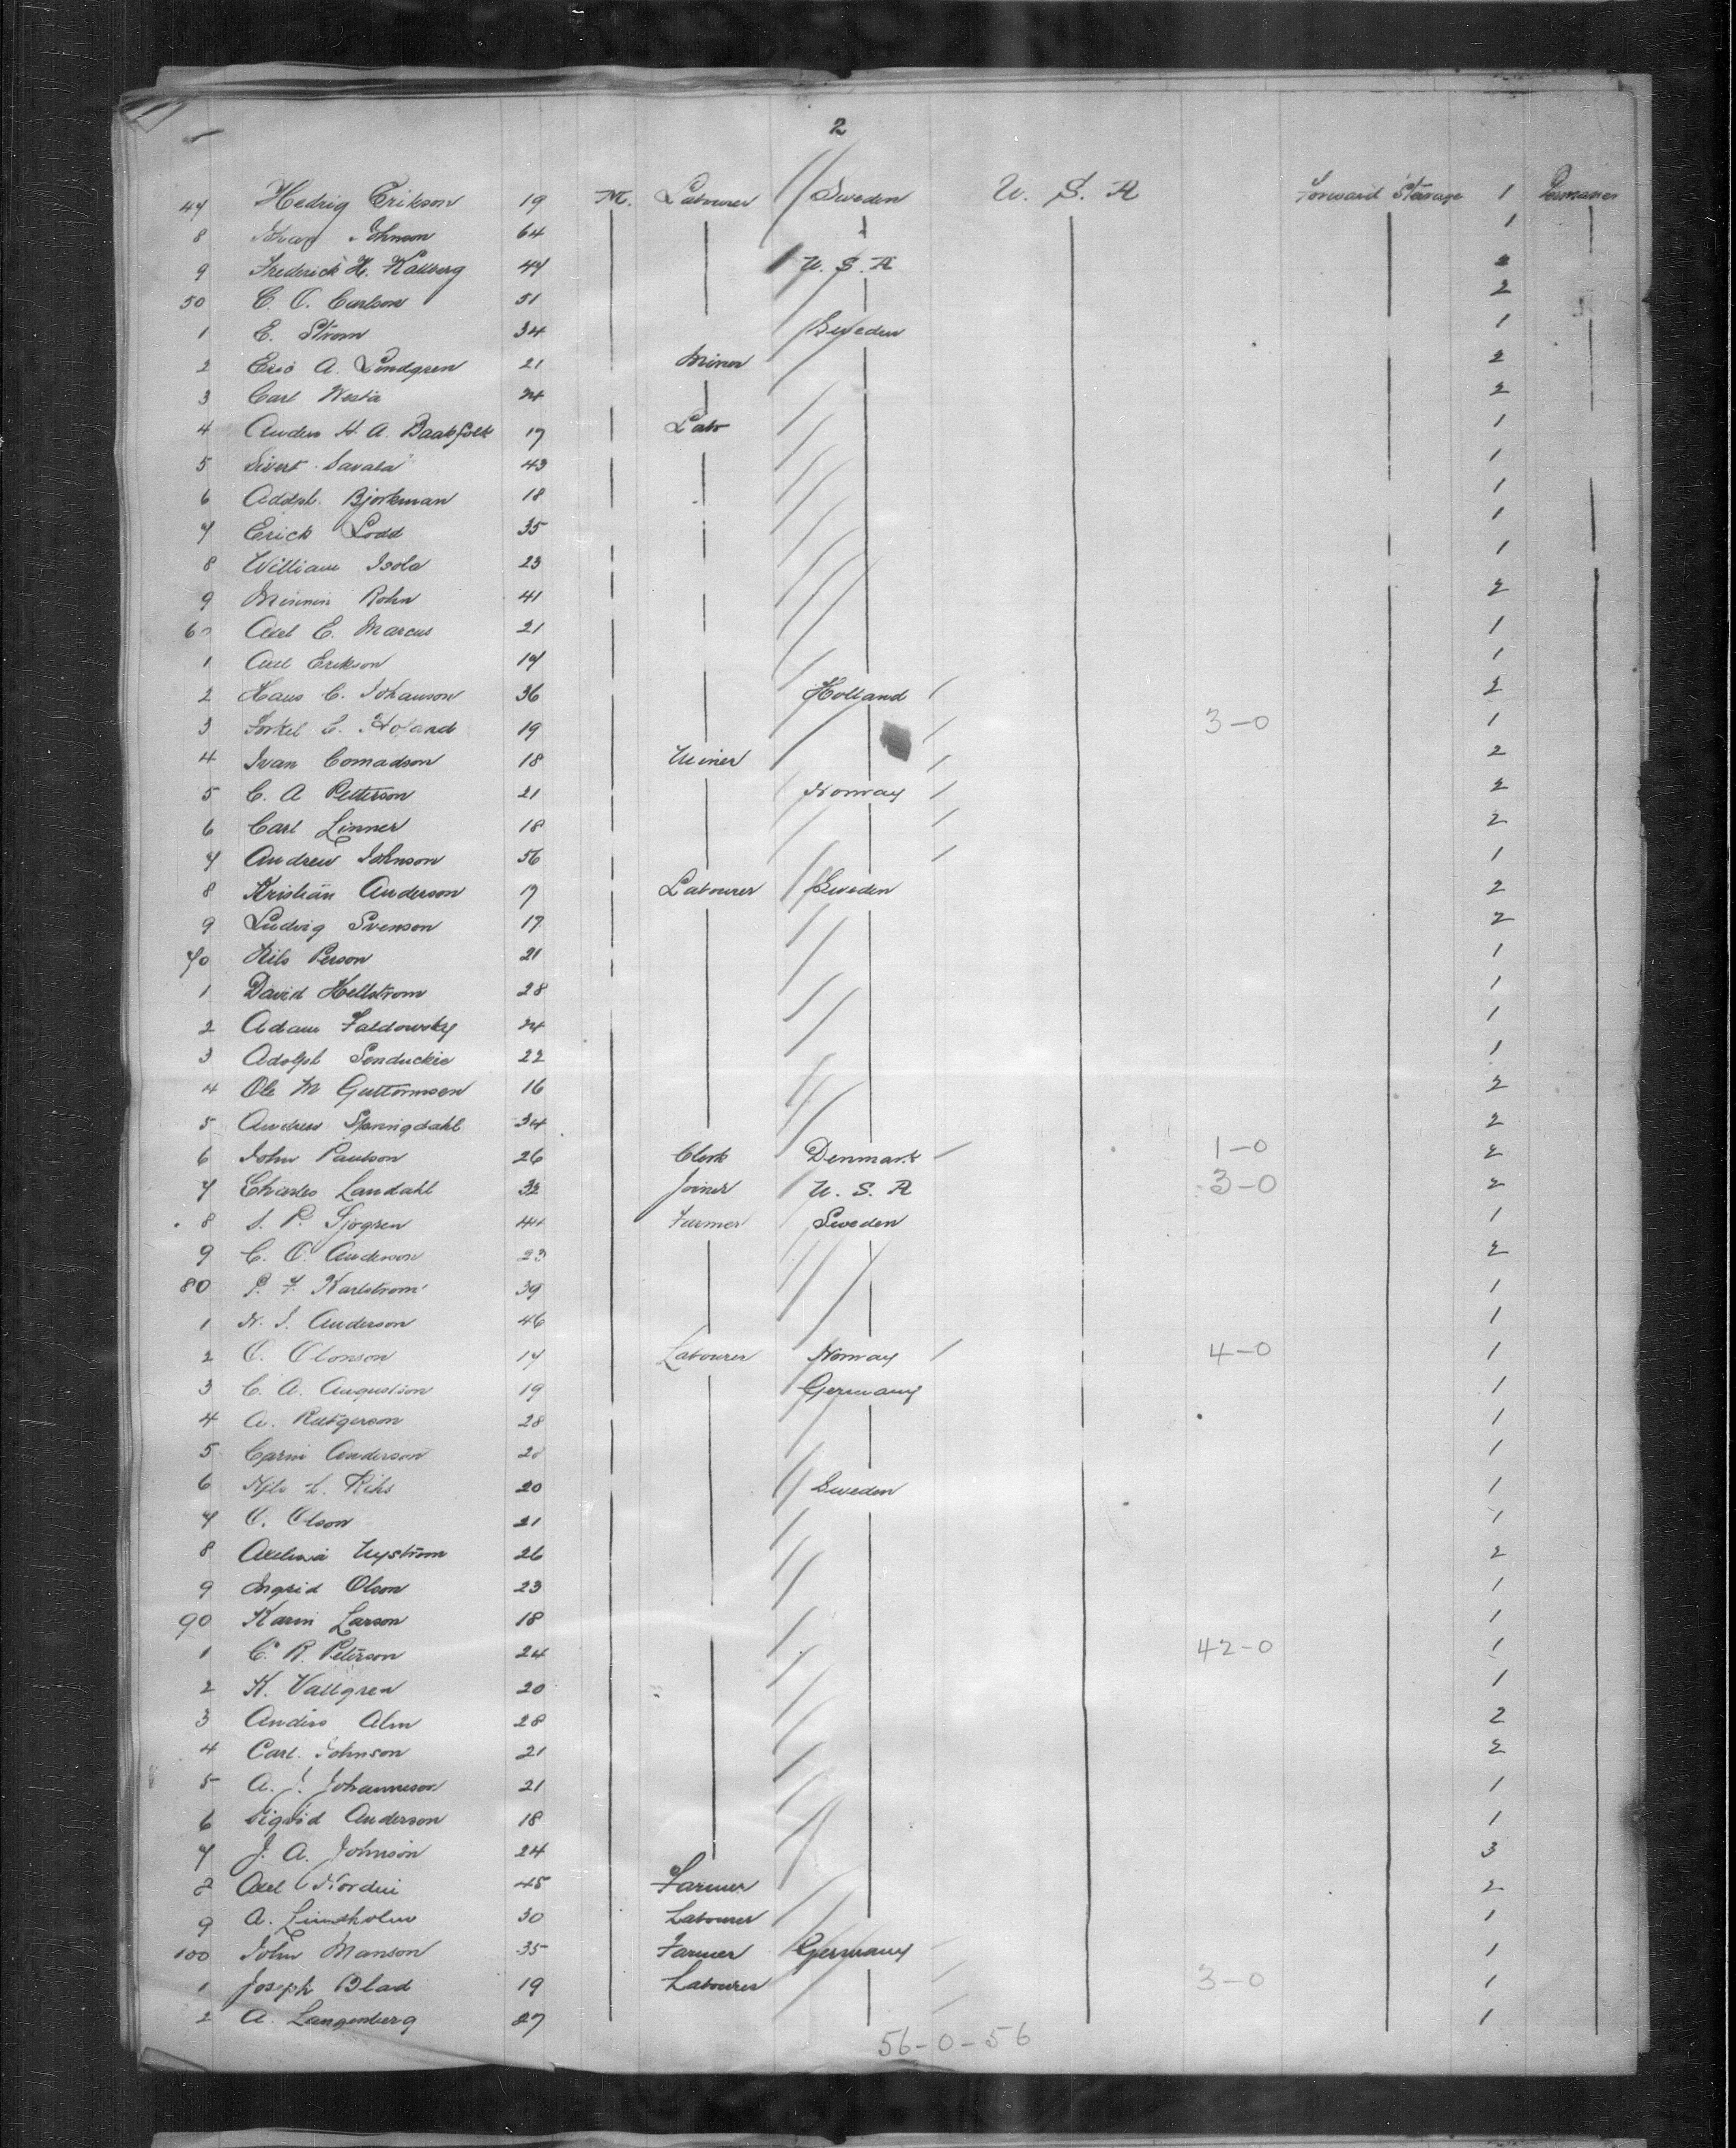 2
47 Hedrig Erikson 19 M. Labourer Sweden U. S. A Forward Stearage 1
8 Johnson 64 1
9 Frederick H. Kallberg 44 U. S. A 2
50 C. O. Carlson 51 2
1 E. Strom 34 Sweden 1
2 Eric A. Lindgren 21 Miner 2
3 Carl Westa 24 2
4 Anders H. A. 17 Labr 1
5 Sivert Savala 43 1
6 Adolph. Bjorkman 18 1
7 Erick Lodd 35 1
8 William Isola 23 1
9 Rohn 41 2
60 Axel E. Marcus 21 1
1 Axel Erikson 17 1
2 Hans C. Johanson 36 Holland 2
3 Torkel Holand 19 3-0 1
4 Ivan Comadson 18 Miner 2
5 C. A Petterson 21 Norway 2
6 Carl Linner 18 2
7 Andrew Johnson 56 1
8 Kristian Anderson 17 Labourer Sweden 2
9 Ludvig Svenson 17 2
70 Nils Person 21 1
1 David Hellstrom 28 1
2 Adam Faldowsky 24 1
3 Adolph Senduckie 22 1
4 Ole M Guttormsen 16 2
5 Andrew Springdahl 34 2
6 John Paulson 26 Clerk Denmark 1-0 2
7 Charles Landahl 32 Joiner U. S. A 3-0 2
8 S. P. Sjogren 44 Farmer Sweden 1
9 C. O. Anderson 23 2
80 P. F. Karlstrom 39 1
1 N. J. Anderson 46 1
2 O. Olonson 17 Labourer Norway 4-0 1
3 C. A. Augustson 19 Germany 1
4 A. Rutgerson 28 1
5 Carin Anderson 1
6 Nils L. 20 Sweden 1
7 O. Olson 21 1
8 Axelina Nystrom 26 2
9 Ingrid Olson 23 1
90 Karin Larson 18 1
1 C. R. Peterson 24 42-0 1
2 K. Vallgren 20 1
3 Anders Alm 28 2
4 Carl Johnson 21 2
5 A. J. Johanneson 21 1
6 Sigrid Anderson 18 1
7 J. A. Johnson 24 3
8 Axel Nordin 45 Farmer 2
9 A. Lindholm 30 Labourer 1
100 John Manson 35 Farmer Germany 1
1 Joseph Blad 19 Labourer 3-0 1
2 A. Langenberg 27 1
56-0-56